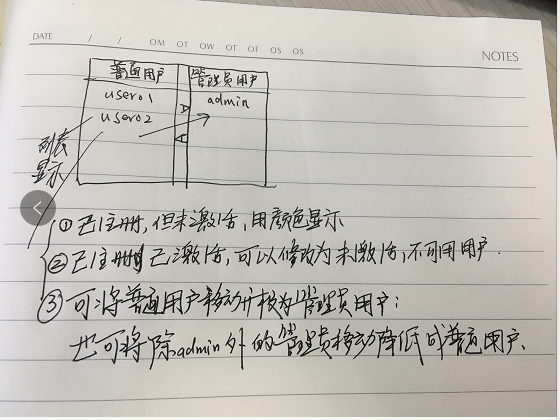 DATE / / OM OT OW OT OF OS OS
NOTES
普通用户 管理员用户
user01 admin
user02
列表
显示
①已注册,但未激活,用颜色显示
②已注册 已激活,可以修改为未激活,不可用用户.
③可将普通用户移动升核为管理员用户;
也可将除admin外的管理员移动降低成普通用户.